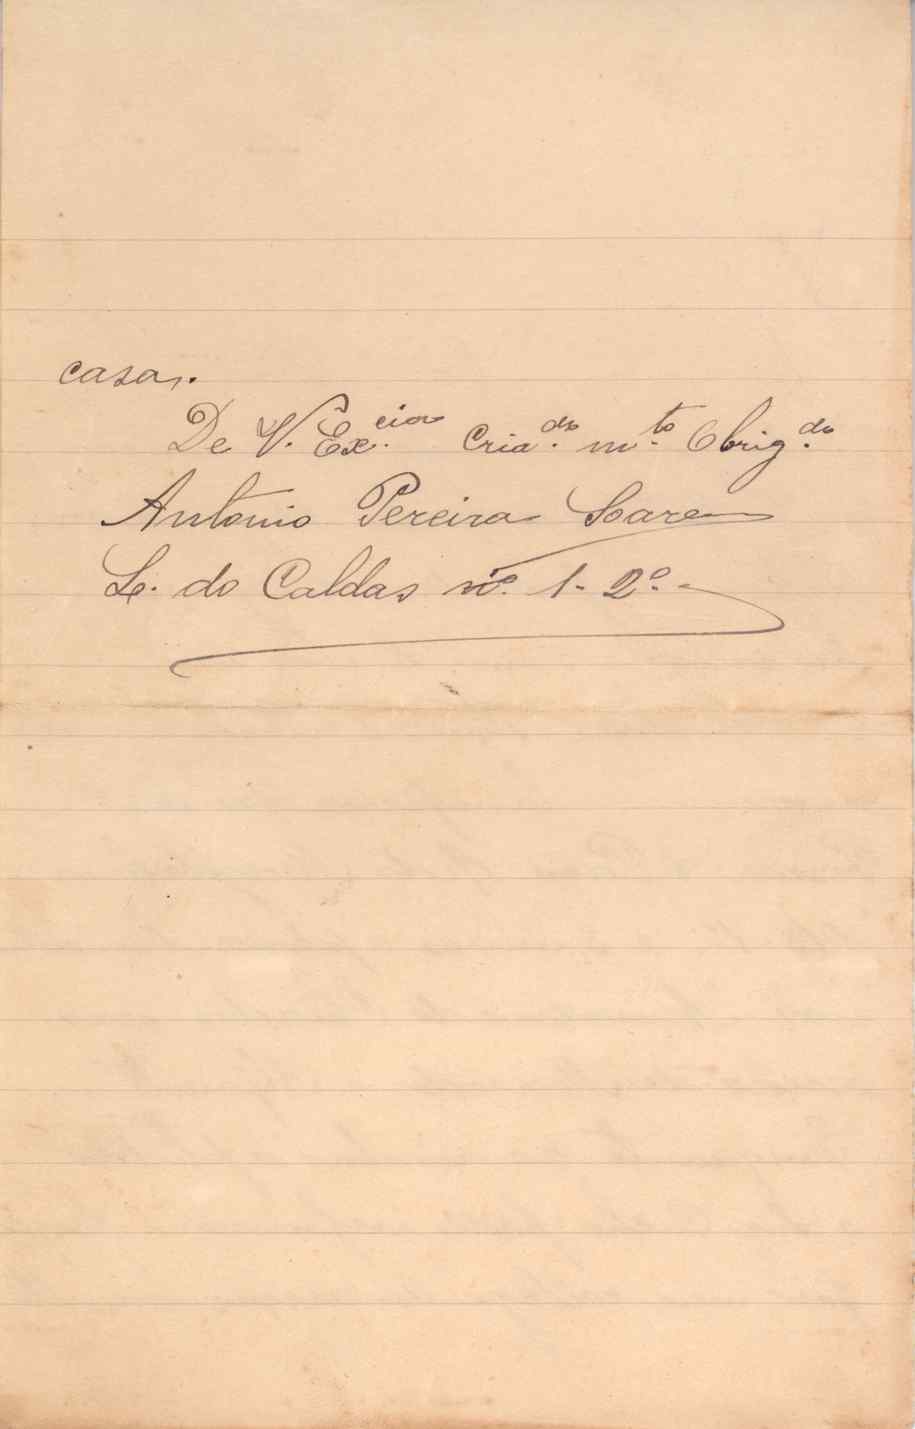 casa.
De V. Ex.cia Cria.do m.to Obrig.do
Antonio Pereira Soares
L. do Caldas nº. 1 - 2º. -